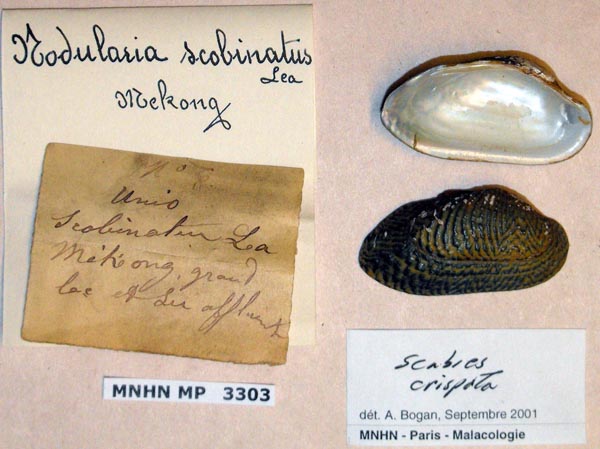 Nodularia scobinatus
Lea
Mekong
Unio
Scobinatus Lea
Mékong, grand
lac et ses affluents
MNHN MP 3303
Scabies
crispata
dét. A. Bogan, Septembre 2001
MNHN - Paris - Malacologie